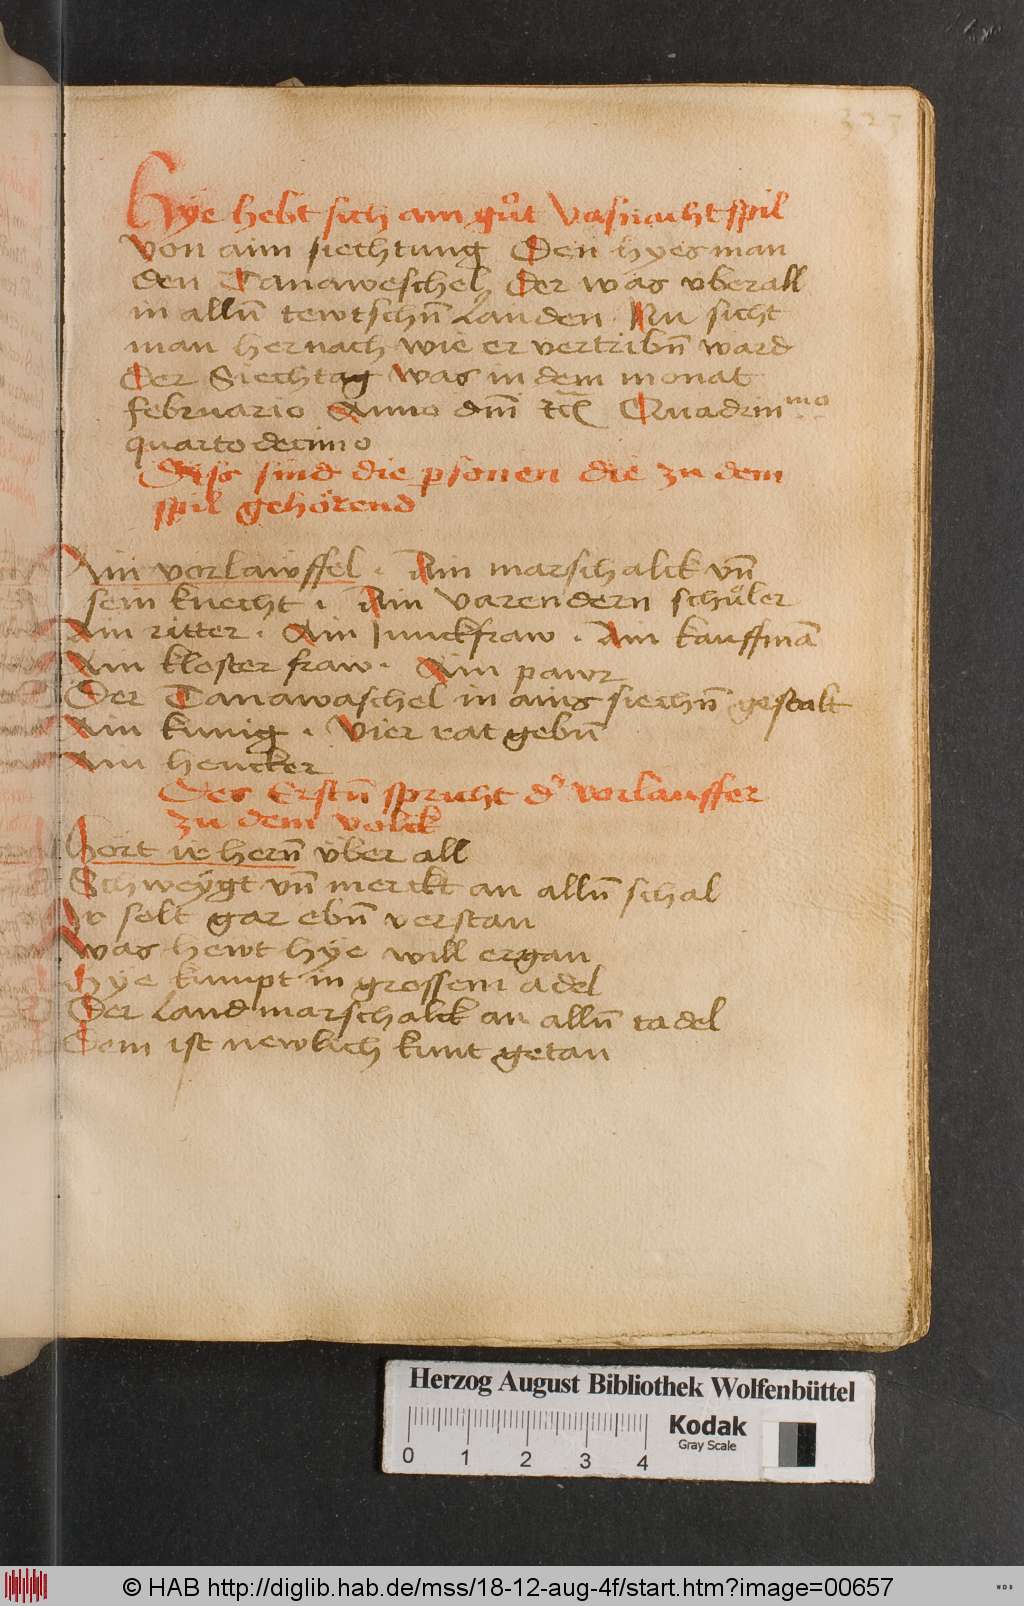 327
Hye hebt sich am gůt Vasnacht spil
von aim siechtung Den hyes man
den Tanaweschel Der was vberall
in allñ tewtschñ Landen Nu sicht
man hernach wie er vertribñ ward
Der Siechtag was in dem monat
februario Anno dm̄i Quadrin mo
quarto decimo
Diss sind die psonen die zu dem
spil gehörend
Ain vorlawffel . Ain marschalck vñ
sein knecht . Ain varendern schůler
Ain ritter . Ain Junckfraw . Ain kauffmā
Ain kloster fraw . Ain pawr
Der Tanawaschel in ains siechñ gestalt
Ain kunig . Vier rat gebñ
Ain hencker
Des Erstñ spricht d' vorlauffer
zu dem volck
Hört ir hernñ über all
Schweÿgt vñ merckt an allñ schal
Ir solt gar ebñ verstan
Was hewt hÿe will ergan
Hÿe kumpt in grossem adel
Der Landmarschalck an allñ tadel
Dem ist newlich kunt getan
Herzog August Bibliothek Wolfenbüttel
Kodak
Gray Scale
0 1 2 3 4
© HAB http://diglib.hab.de/mss/18-12-aug-4f/start.htm?image=00657